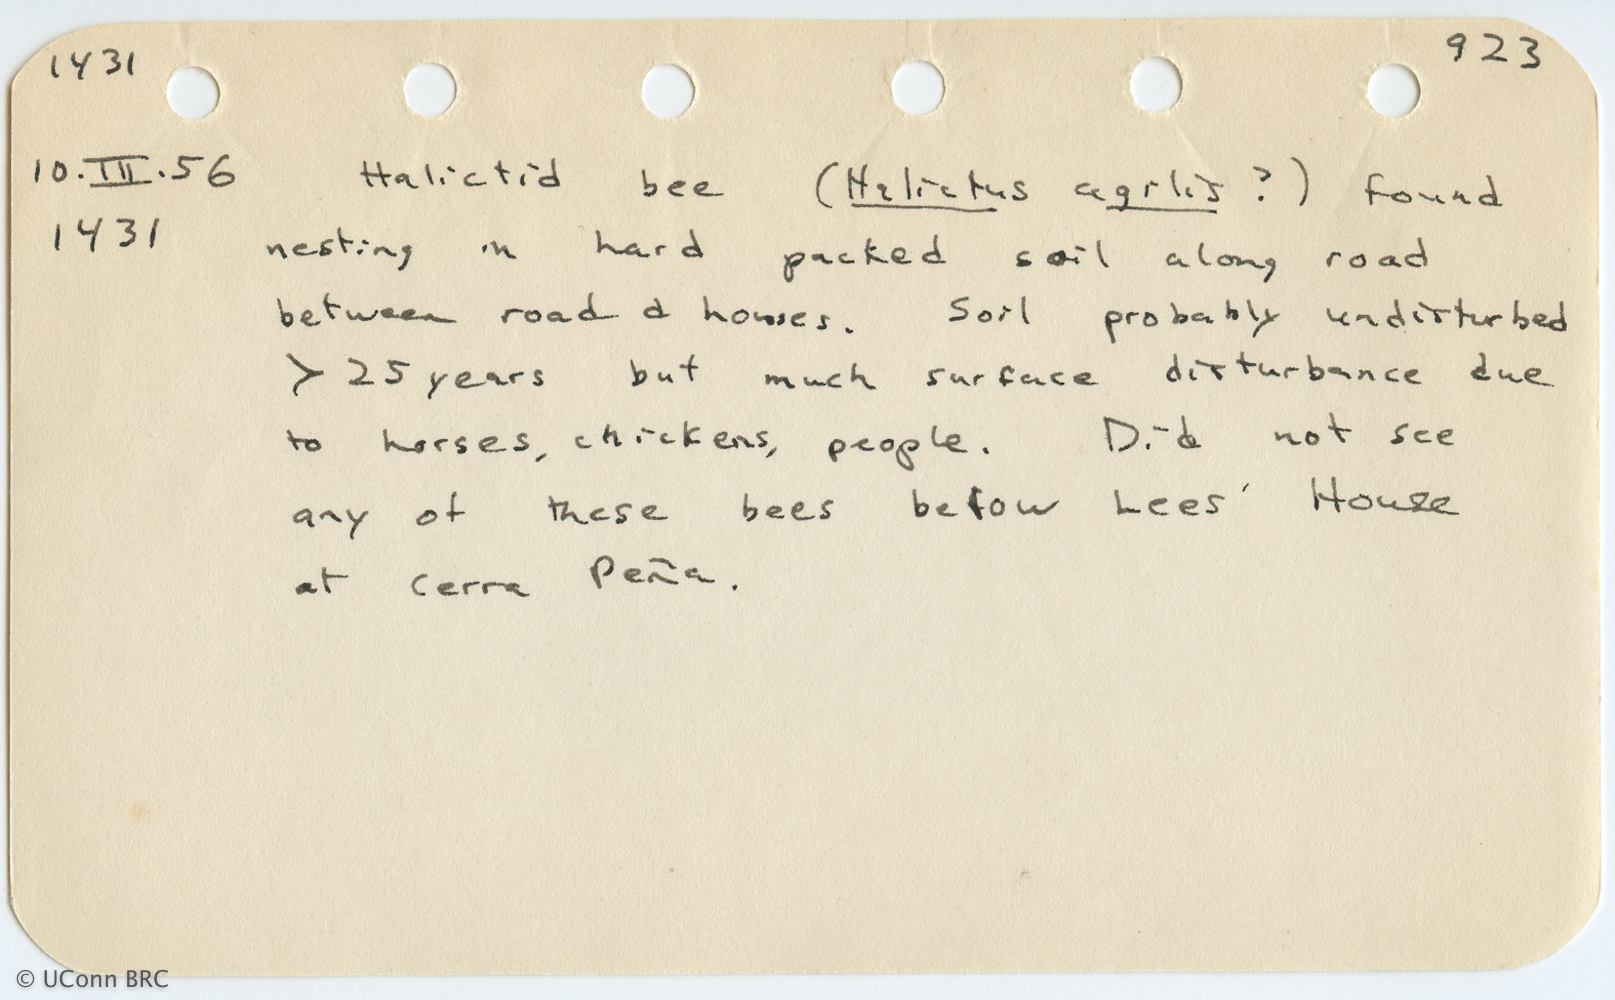 1431 923
10.III.56 Halictid bee (Halictus agrlis?) found
1431 nesting in hard packed soil along road
between road & houses. Soil probably undisturbed
> 25 years but much surface disturbance due
to horses, chickens, people. Did not see
any of these bees below Lees' House
at Cerra Peña.
© UConn BRC